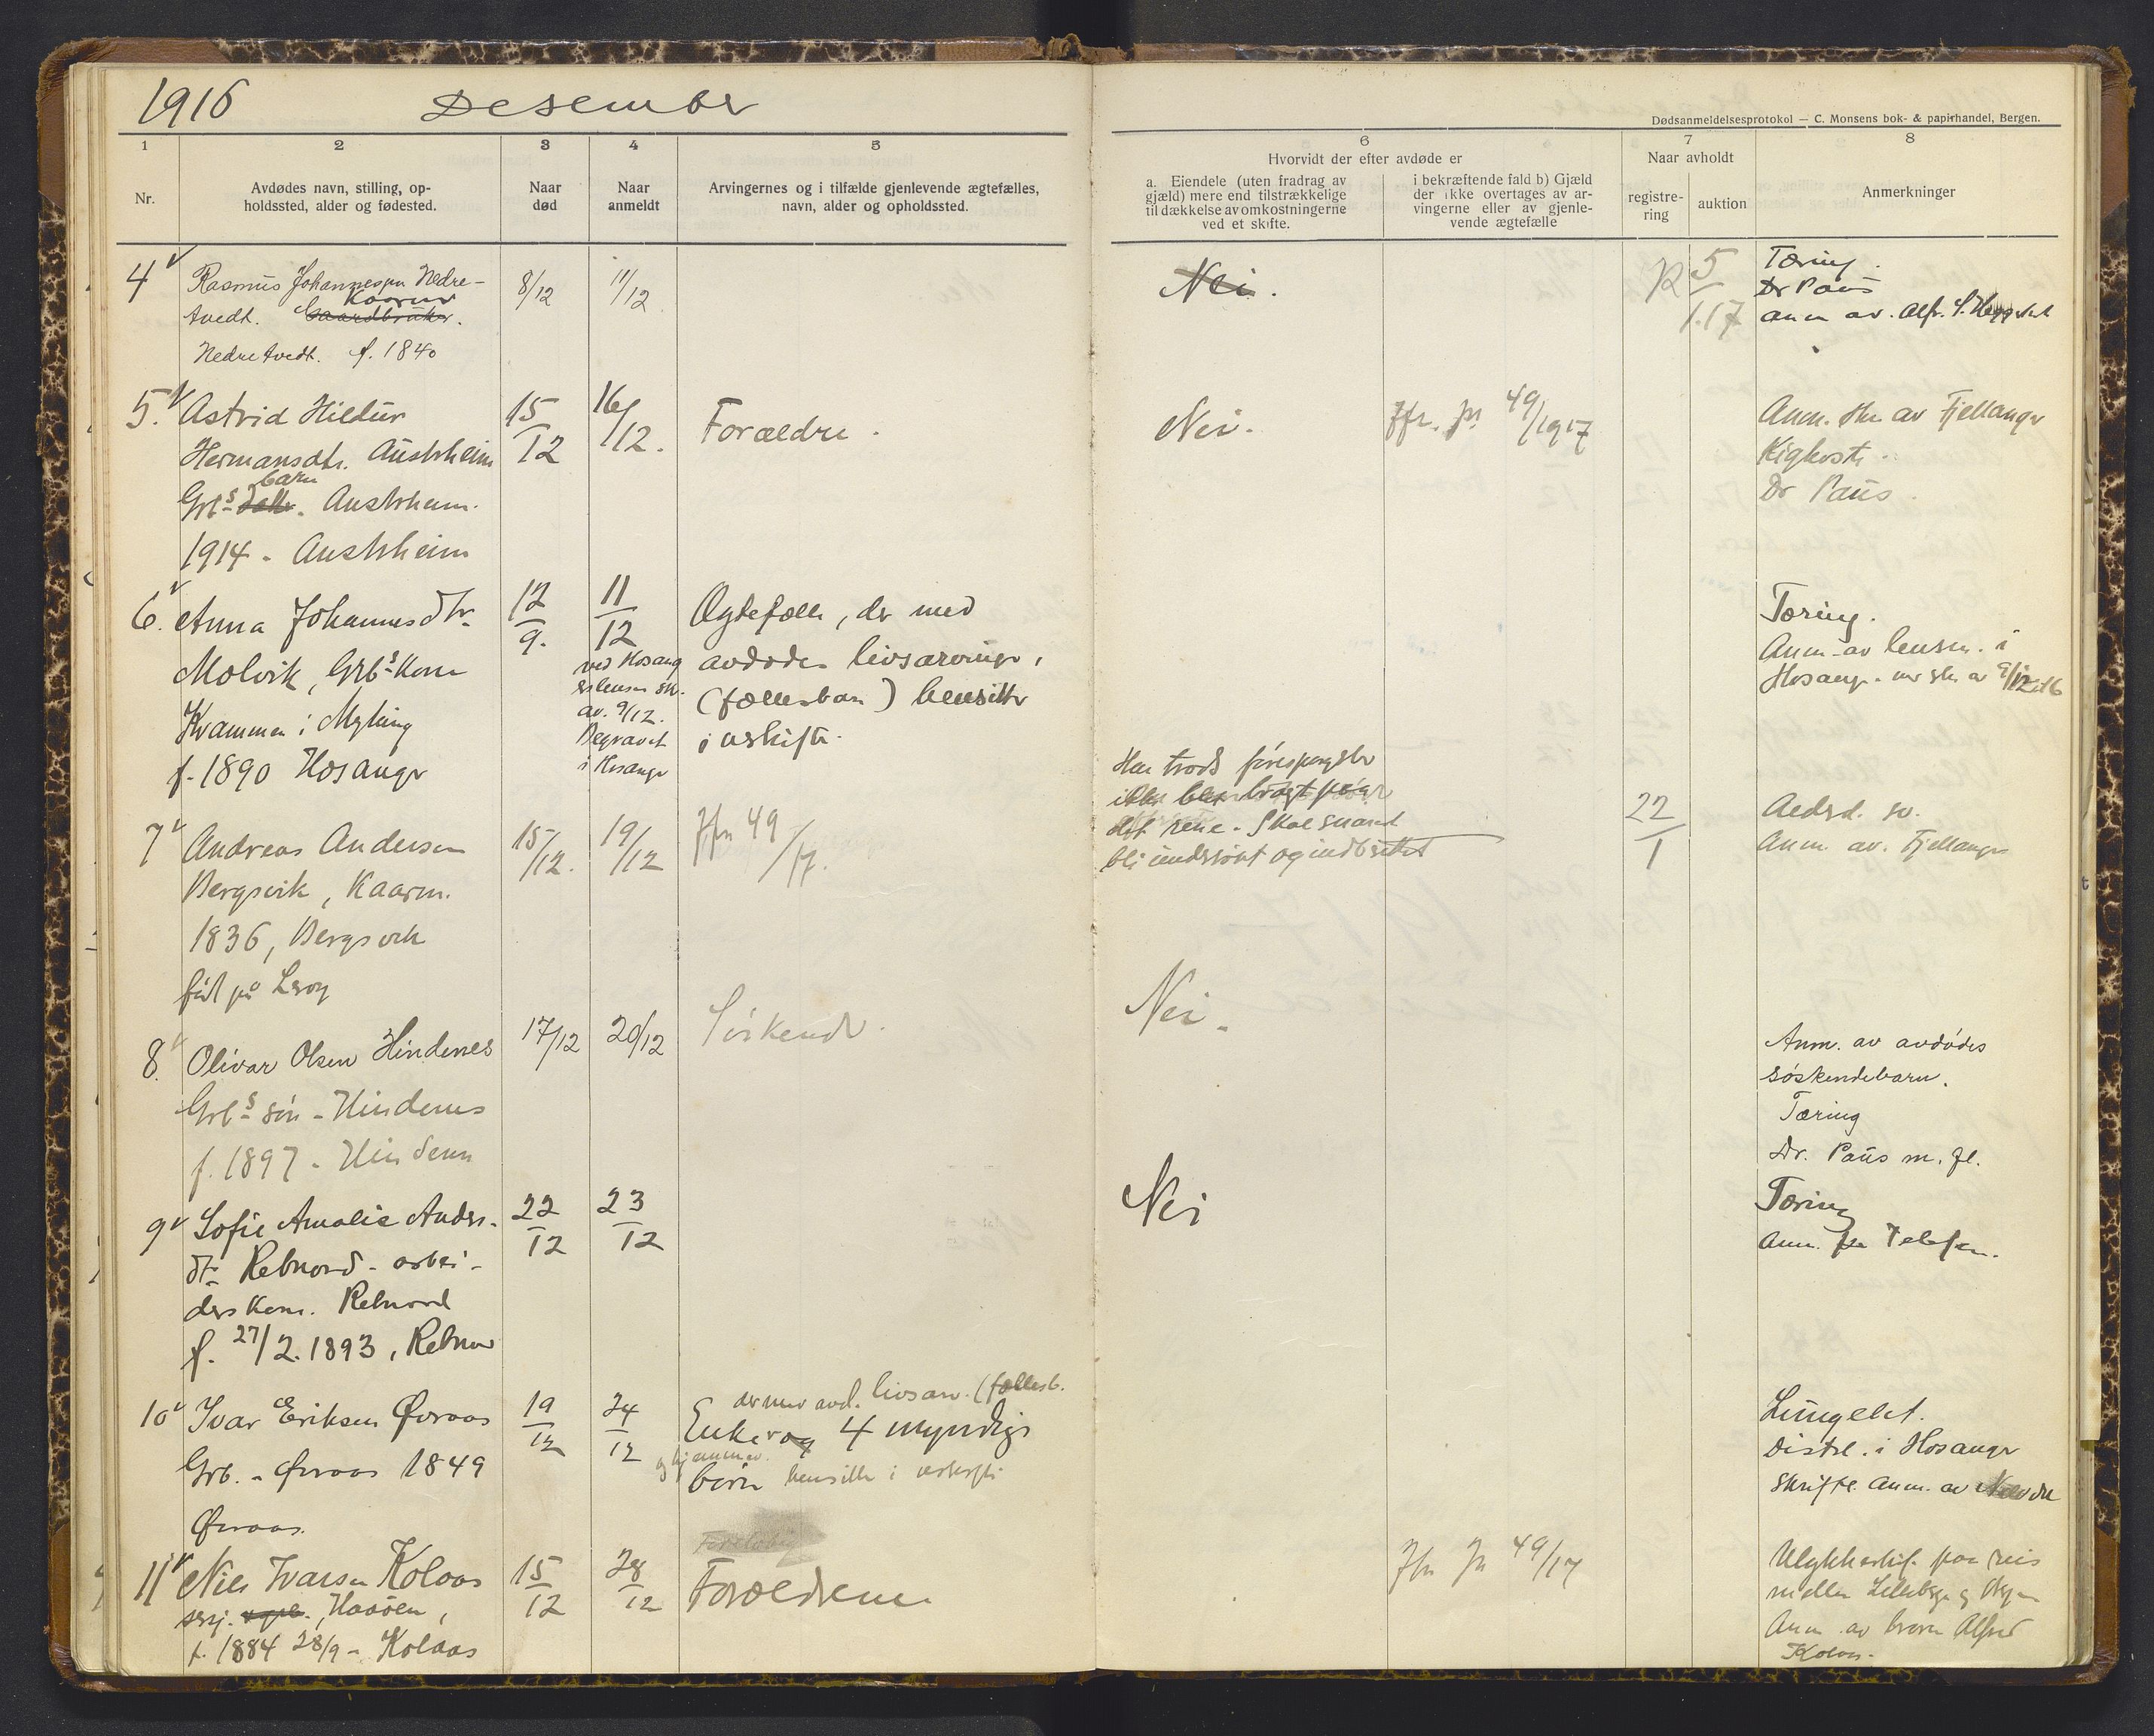 1916 Desember
Dødsanmeldelsesprotokol — C. Monsens bok- & papirhandel, Bergen.
1 2 3 4 5 6 7 8
Nr.
Avdødes navn, stilling, op-
holdssted, alder og fødested.
Naar
død
Naar
anmeldt
Arvingernes og i tilfælde gjenlevende ægtefælles,
navn, alder og opholdssted.
Hvorvidt der efter avdøde er
a. Eiendele (uten fradrag av
gjæld) mere end tilstrækkelige
til dækkelse av omkostningerne
ved et skifte.
i bekræftende fald b) Gjæld
der ikke overtages av ar-
vingerne eller av gjenle-
vende ægtefælle
Naar avholdt
registre-
ring
auktion
Anmerkninger
4
Rasmus Johannesen Nedre-
Kaarm
tvedt. Gaardbruker.
Nedretvedt. f. 1840
8/12
11/12
Nei.
5
1.17
Tæring.
Dr Paus
Anm av. Alfr.
5. Astrid Hildur
Hermansdtr. Austrheim
barn
Grb.s datr. Austrheim.
1914 - Austrheim
15/12
16/12.
Forældre.
Nei.
Jfr. jr 49/1917
Anm. skr av Fjellanger
Kighoste.
Dr Paus.
6. Anna Johannesdtr.
Molvik, Grb.s Kone
Kvammen i Myking
f. 1890 Hosanger
12/9.
11/12
ved Hosang
erlensm skr.
av. 9/12.
Begravet
i Hosanger
Ægtefælle, der med
avdødes livsarvinger,
(fællesbarn) hensitter
i uskifte.
Tæring.
Anm. av lensm. i
Hosang.
7
Andreas Andersen
Bergsvik, Kaarm.
1836, Bergsvik
født på Leroy
15/12.
19/12
Jfr 49/17.
Har trods forespørgsler
ikke blit bragt paa
det rene. Skal snarest
bli undersøkt og indberettet
22/1
Aldrd. sv.
Anm. av. Fjellanger
8.
Olivar Olsen Hindenes
Grb.s søn - Hindenes
f. 1897 - Hindenes
17/12
20/12
Søskende.
Nei.
Anm. av avdødes
søskendebarn.
Tæring
Dr. Paus m. fl.
9 Sofie Amalie Anders-
dtr Rebnord - arbei-
ders Kone. Rebnord
f. 27/2.1893, Rebnor
22/12
23/12
Nei
Tæring
Anm. pr Telefon.
10 Ivar Eriksen Øvraas
Grb. - Øvraas 1849
Øvraas.
19/12
24/12
der med avd. livsarv. (fællesb.
Enke og 4 myndige
og hjemmev.
børn hensitter i uskifte
Lungebet.
Distrl. i Hosanger
Skriftl. Anm. av
11 Nils Ivarsen Kolaas
sersj. Haaøen,
f. 1884 28/9 - Kolaas
15/12
28/12
Foreløbig
Forældrene.
Jfr Jr 49/17
Ulykkestilf. paa reis
mellem
Anm. av broren Alfred
Kolaas.